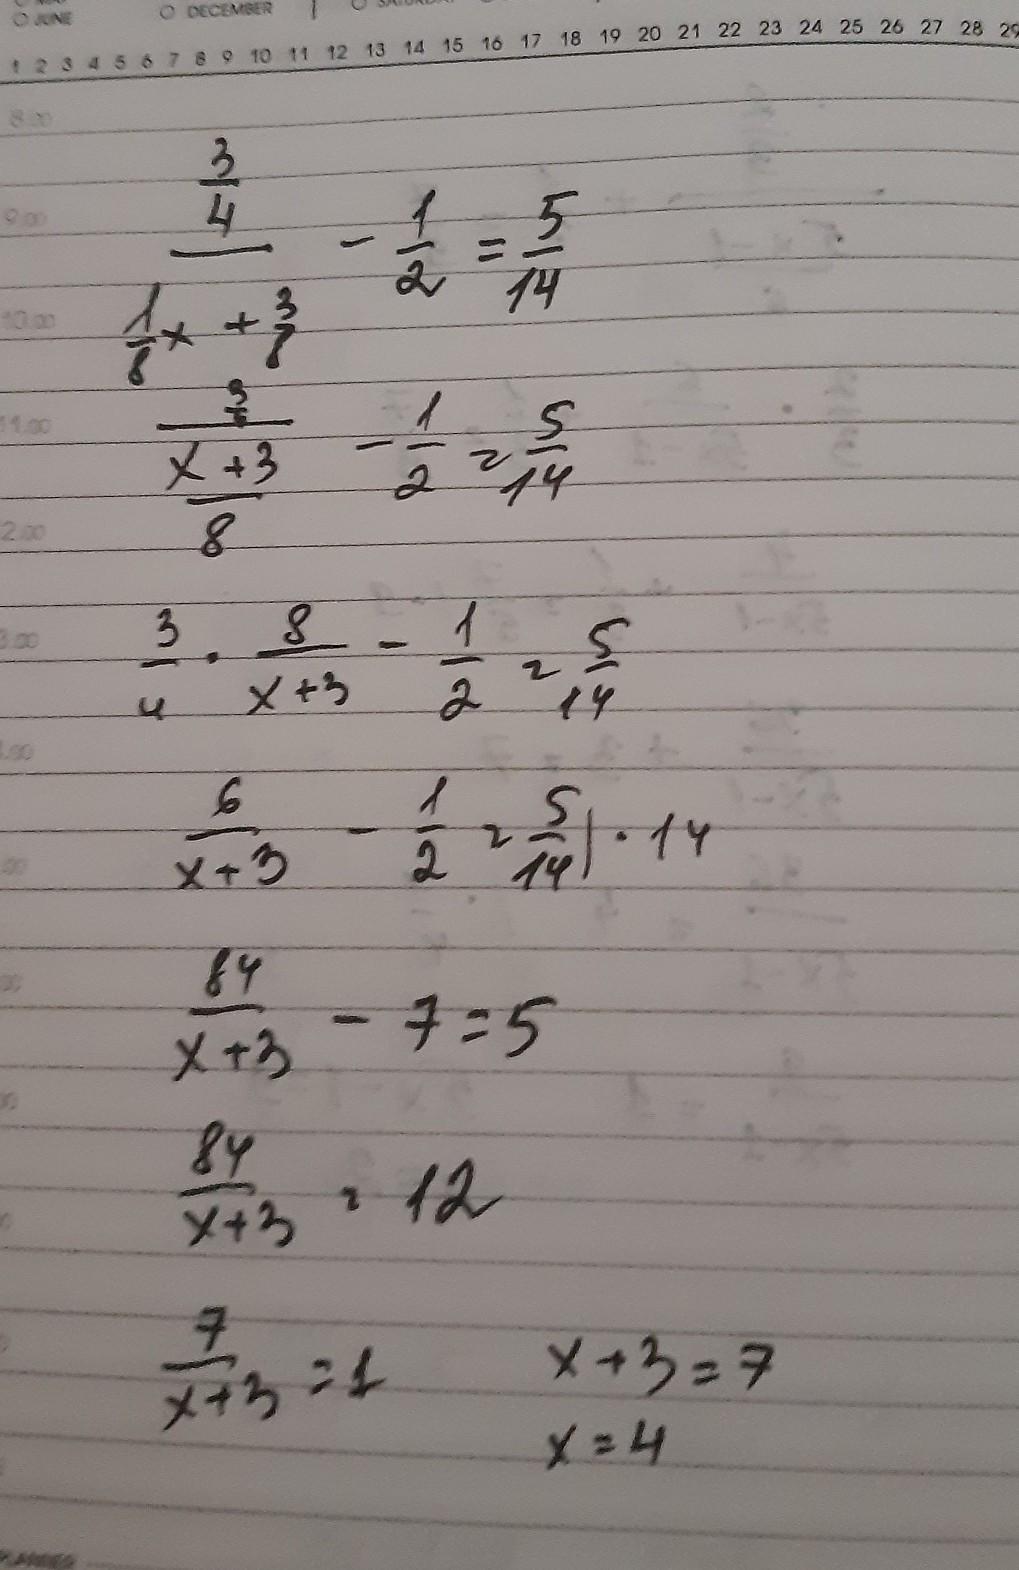 JUNE DECEMBER
1 2 3 4 5 6 7 8 9 10 11 12 13 14 15 16 17 18 19 20 21 22 23 24 25 26 27 28 29
8.00
9.00
10.00
11.00
(3/4)/(1/8 x + 3/8) - 1/2 = 5/14
(3/4)/((x+3)/8) - 1/2 = 5/14
3/4 · 8/(x+3) - 1/2 = 5/14
6/(x+3) - 1/2 = 5/14 | · 14
84/(x+3) - 7 = 5
84/(x+3) = 12
7/(x+3) = 1 x+3=7
x=4